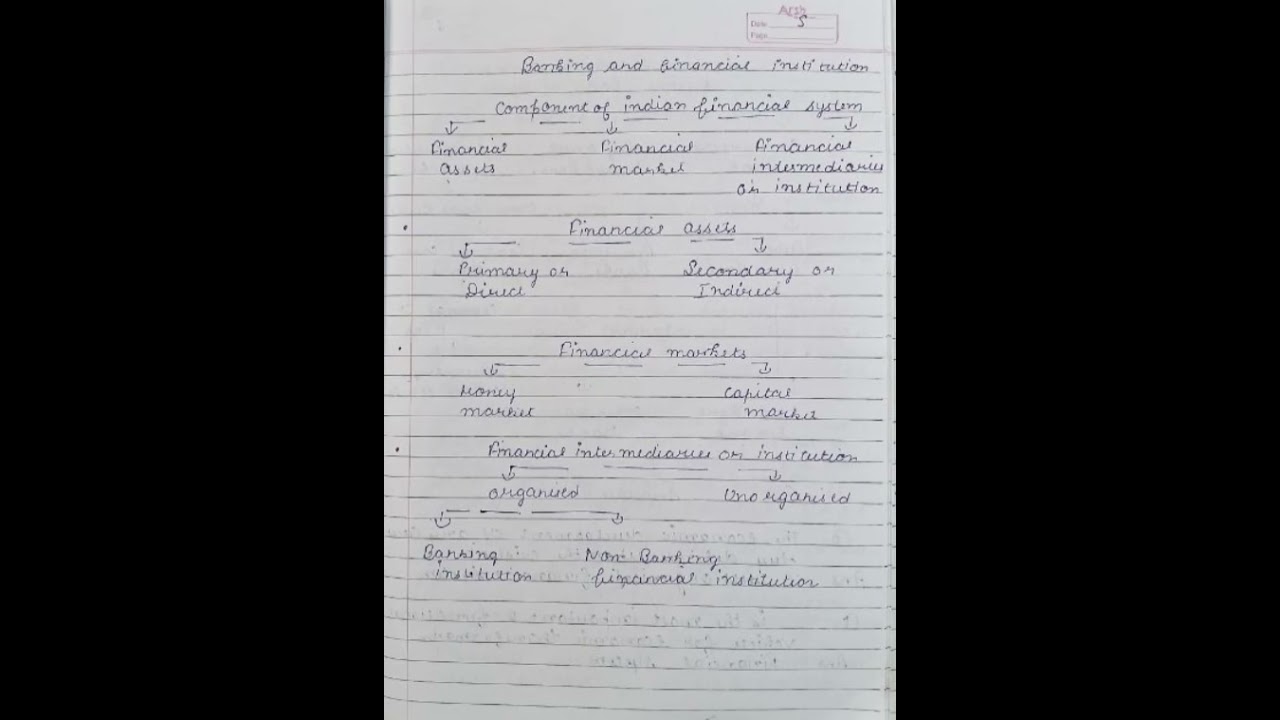 Arsh
Date 5
Page
Banking and financial institution
Component of indian financial system
Financial Financial Financial
assets market intermediaries
or institution
Financial assets
Primary or Secondary or
Direct Indirect
Financial markets
Money Capital
market market
Financial intermediaries or institution
organised Unorganised
Banking Non-Banking
institution financial institution